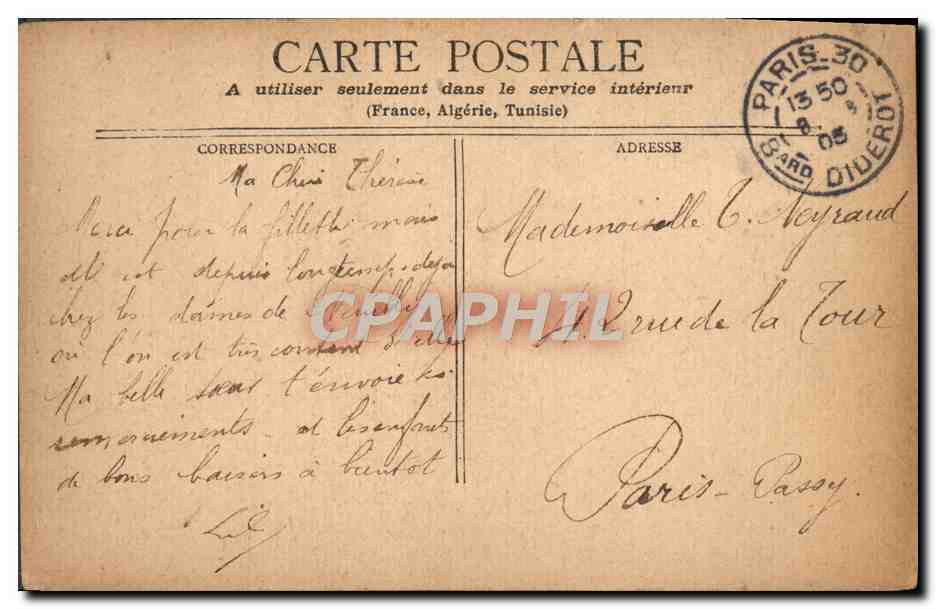 CARTE POSTALE
A utiliser seulement dans le service intérieur
(France, Algérie, Tunisie)
PARIS-30
13 50
8
05
Bard DIDEROT
CORRESPONDANCE
Ma Chère Thérèse
Merci pour la fillette mais
elle est depuis longtemps déjà
chez les dames de Neuilly
où l'on est très content d'elle
Ma belle sœur t'envoie ses
remerciements et les enfants
de bons baisers à bientôt
ADRESSE
Mademoiselle T. Neyraud
42 rue de la Tour
Paris-Passy.
CPAPHIL